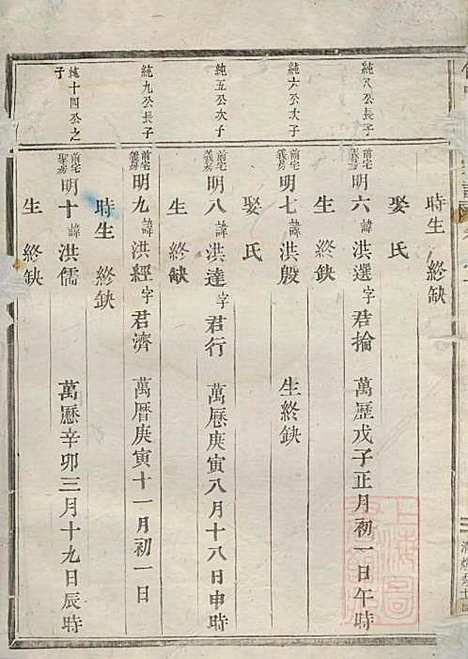 時生　終缺
娶氏
純八公長子
前宅義房明六諱洪選字君掄　萬歷戊子正月初一日午時
生　終缺
娶氏
純六公次子
前宅義房明七諱洪殷　生終缺
生　終缺
純五公次子
前宅義房明八諱洪達字君行　萬歷庚寅八月十八日申時
純九公長子
前宅義房明九諱洪經字君濟　萬曆庚寅十一月初一日
時生　終缺
純十四公之子
前宅明十諱洪儒　萬歷辛卯三月十九日辰時
生　終缺